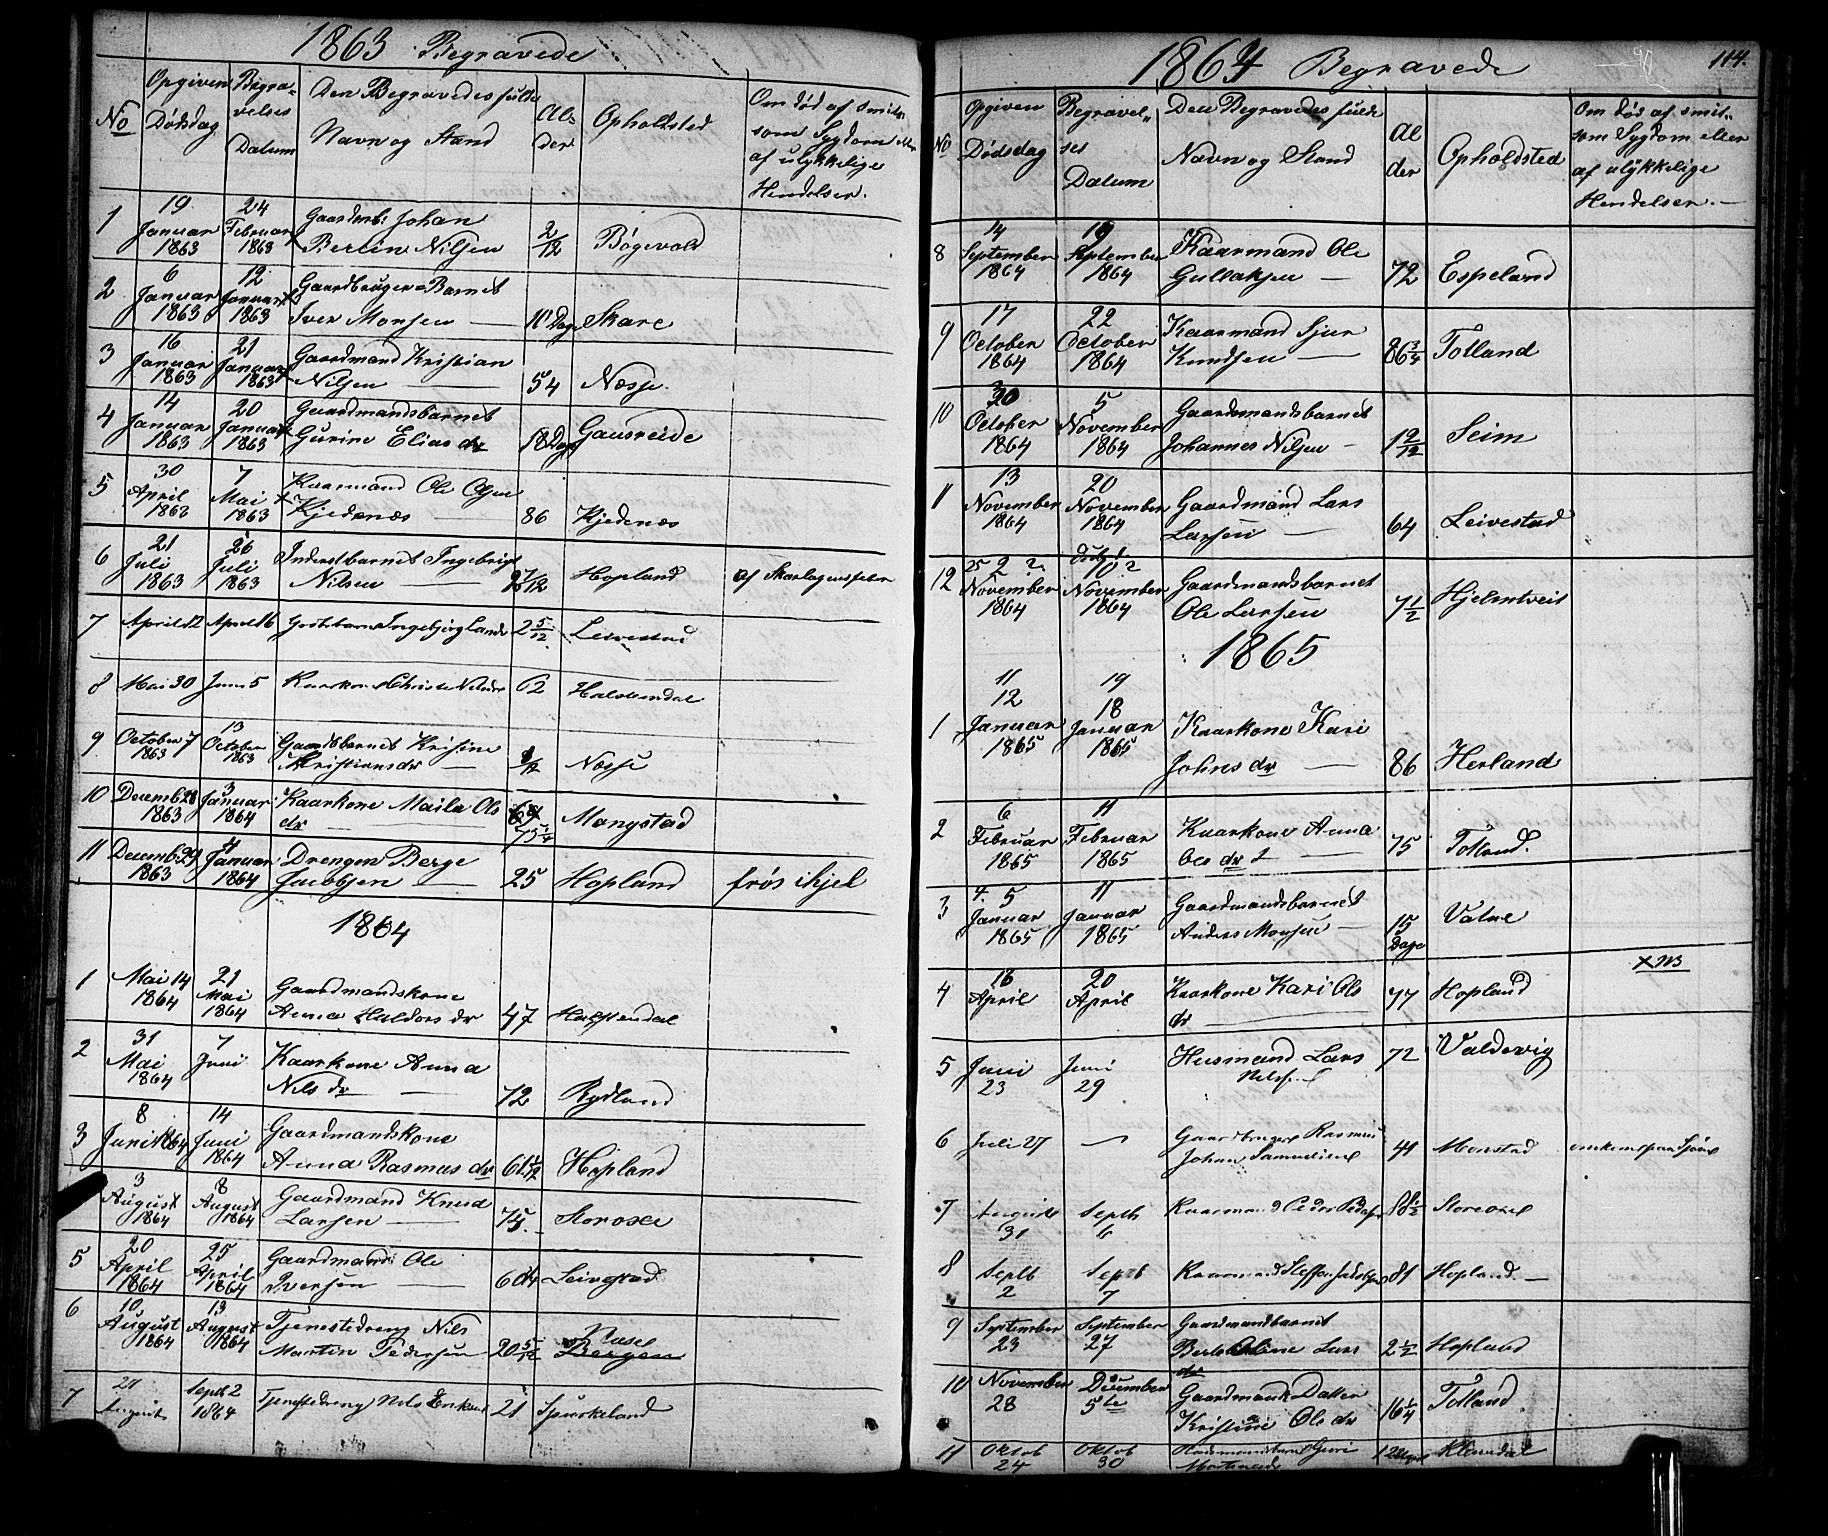 1863 Begravede
No
Opgiven
Dødsdag
Begra-
velses
Datum
Den Begravedes fulde
Navn og Stand
Al-
der
Opholdsted
Om død af smit-
som Sygdom eller
af ulykkelige
Hendelser.
1
19 Januar 1863
24 Februar 1863
Gaardmb: Johan
Berlin Nilsen
2/12
Bøgevold
2
6 Januar 1863
12 Januar 1863
Gaardbruger-Barnet
Iver Monsen
10 Dage
Skare
3
16 Januar 1863
21 Januar 1863
Gaardmand Kristian
Nilsen
54
Næsse
4
14 Januar 1863
20 Januar 1863
Gaardmandsbarnet
Gurine Elias dr
18 Dage
Gausreide
5
30 April 1863
7 Mai 1863
Kaarmand Ole Olsen
Kjedenæs
86
Kjedenæs
6
21 Juli 1863
26 Juli 1863
Inderstbarnet Ingebrigt
Nilsen
Hopland
af Skarlagensfeber
7
April 12
April 16
Ingebjørg
2 5/12
Leivestad
8
Mai 30
Juni 5
Kaarkone Christi Nilsdr
62
Halstendal
9
October 7 1863
13 October 1863
Gaardsbarnet Krisine
Kristiansdr
Næsse
10
Decemb 28 1863
3 Januar 1864
Kaarkone Maila Ols
dr
75 1/4
Mongstad
11
Decemb 29 1863
4 Januar 1864
Drengen Berge
Jacobsen
25
Hopland
frøs ihjel
1864
1
Mai 14 1864
21 Mai 1864
Gaardmandskone
Anna Haldors dr
47
Halstendal
2
31 Mai 1864
7 Juni
Kaarkone Anna
Nils dr
72
Rydland
3
8 Juni 1864
14 Juni 1864
Gaardmandskone
Anna Rasmus dr
Hopland
3 August 1864
8 August 1864
Gaardmand Knud
Larsen
75
Storoxe
5
20 April 1864
25 April 1864
Gaardmand Ole
Iversen
Leivestad
6
10 August 1864
13 August 1864
Tjenestedreng Nils
Martin Pedersen
20 5/12
Bergen
7
August
Septb 2 1864
Tjenestedreng Nils
21
Spurkeland
1864 Begravede
114.
No
Opgiven
Dødsdag
Begravel-
ses
Datum
Den Begravedes fulde
Navn og Stand
Al
der
Opholdsted
Om død af smit-
som Sygdom eller
af ulykkelige
Hendelser.
8
14 September 1864
19 September 1864
Kaarmand Ole
Gullaksen
72
Espeland
9
17 October 1864
22 October 1864
Kaarmand Sjur
Knudsen
86 3/4
Totland
10
30 October 1864
5 November 1864
Gaardmandsbarnet
Johannes Nilsen
1 2/12
Seim
11
13 November 1864
20 November 1864
Gaardmand Lars
Larsen
64
Leivestad
12
25 2 ? November 1864
10 ? November 1864
Gaardmandsbarnet
Ole Larsen
7 1/2
Hjelmtveit
1865
1
11
12 Januar 1865
19
18 Januar 1865
Kaarkone Kari
Johns dr
86
Herland
2
6 Februar 1865
11 Februar 1865
Kaarkone Anna
Ols dr
75
Totland.
3
4. 5 Januar 1865
11 Januar 1865
Gaardmandsbarnet
Anders Monsen
15 Dage
Vatne
x NB
4
16 April
20 April
Kaarkone Kari Ols
dr
77
Hopland
5
Juni 23
Juni 29
Husmand Lars
Nilsen
72
Valdevig
6
Juli 27
Gaardbruger Rasmus
Johan
44
Monstad
7
August 31
Septb 6
Kaarmand Peder
88 1/2
8
Septb 2
Septb 7
Kaarmand Steffen
81
Hopland
9
September 23
September 27
Gaardmandbarnet
Lars
dr
2 1/2
Hopland
10
November 28
December 5te
Gaardmands Datter
Kristine Ols dr
16 1/4
Totland.
11
Oktob 24
Oktob 30
Guri